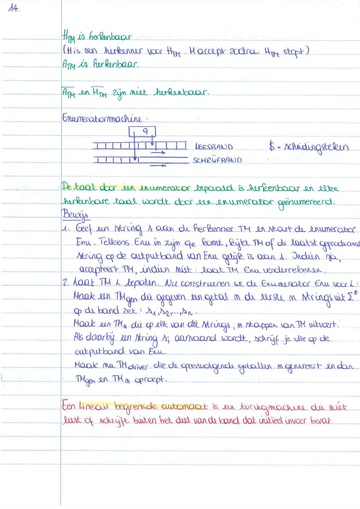 14.
H_TM is herkenbaar
(H is een herkenner voor H_TM. H accept zodra H_TM stopt)
A_TM is herkenbaar.
A̅_TM en H̅_TM zijn niet herkenbaar.
Enumeratormachine:
q
LEESBAND $ = scheidingsteken
SCHRIJFBAND
De taal door een enumerator bepaald is herkenbaar en elke
herkenbare taal wordt door een enumerator geënumereerd.
Bewijs
1. Geef een string s aan de herkenner TM en start de enumerator
Enu. Telkens Enu in zijn qe komt, kijkt TM of de laatst geproduceerde
string op de outputband van Enu gelijk is aan s. Indien ja,
accepteert TM, indien niet: laat TM Enu verderrekenen.
2. Laat TM L bepalen. Nu construeren we de Enumerator Enu voor L:
Maak een TMgen die gegeven een getal n de eerste n strings uit Σ*
op de band zet: s1, s2, ..., sn.
Maak een TMn die op elk van die strings, n stappen van TM uitvoert.
Als daarbij een string si aanvaard wordt, schrijf je die op de
outputband van Enu.
Maak nu TMdriver die de opeenvolgende getallen n genereert en dan
TMgen en TMn oproept.
Een lineair begrensde automaat is een turingmachine die niet
leest of schrijft buiten het deel van de band dat initieel invoer bevat.